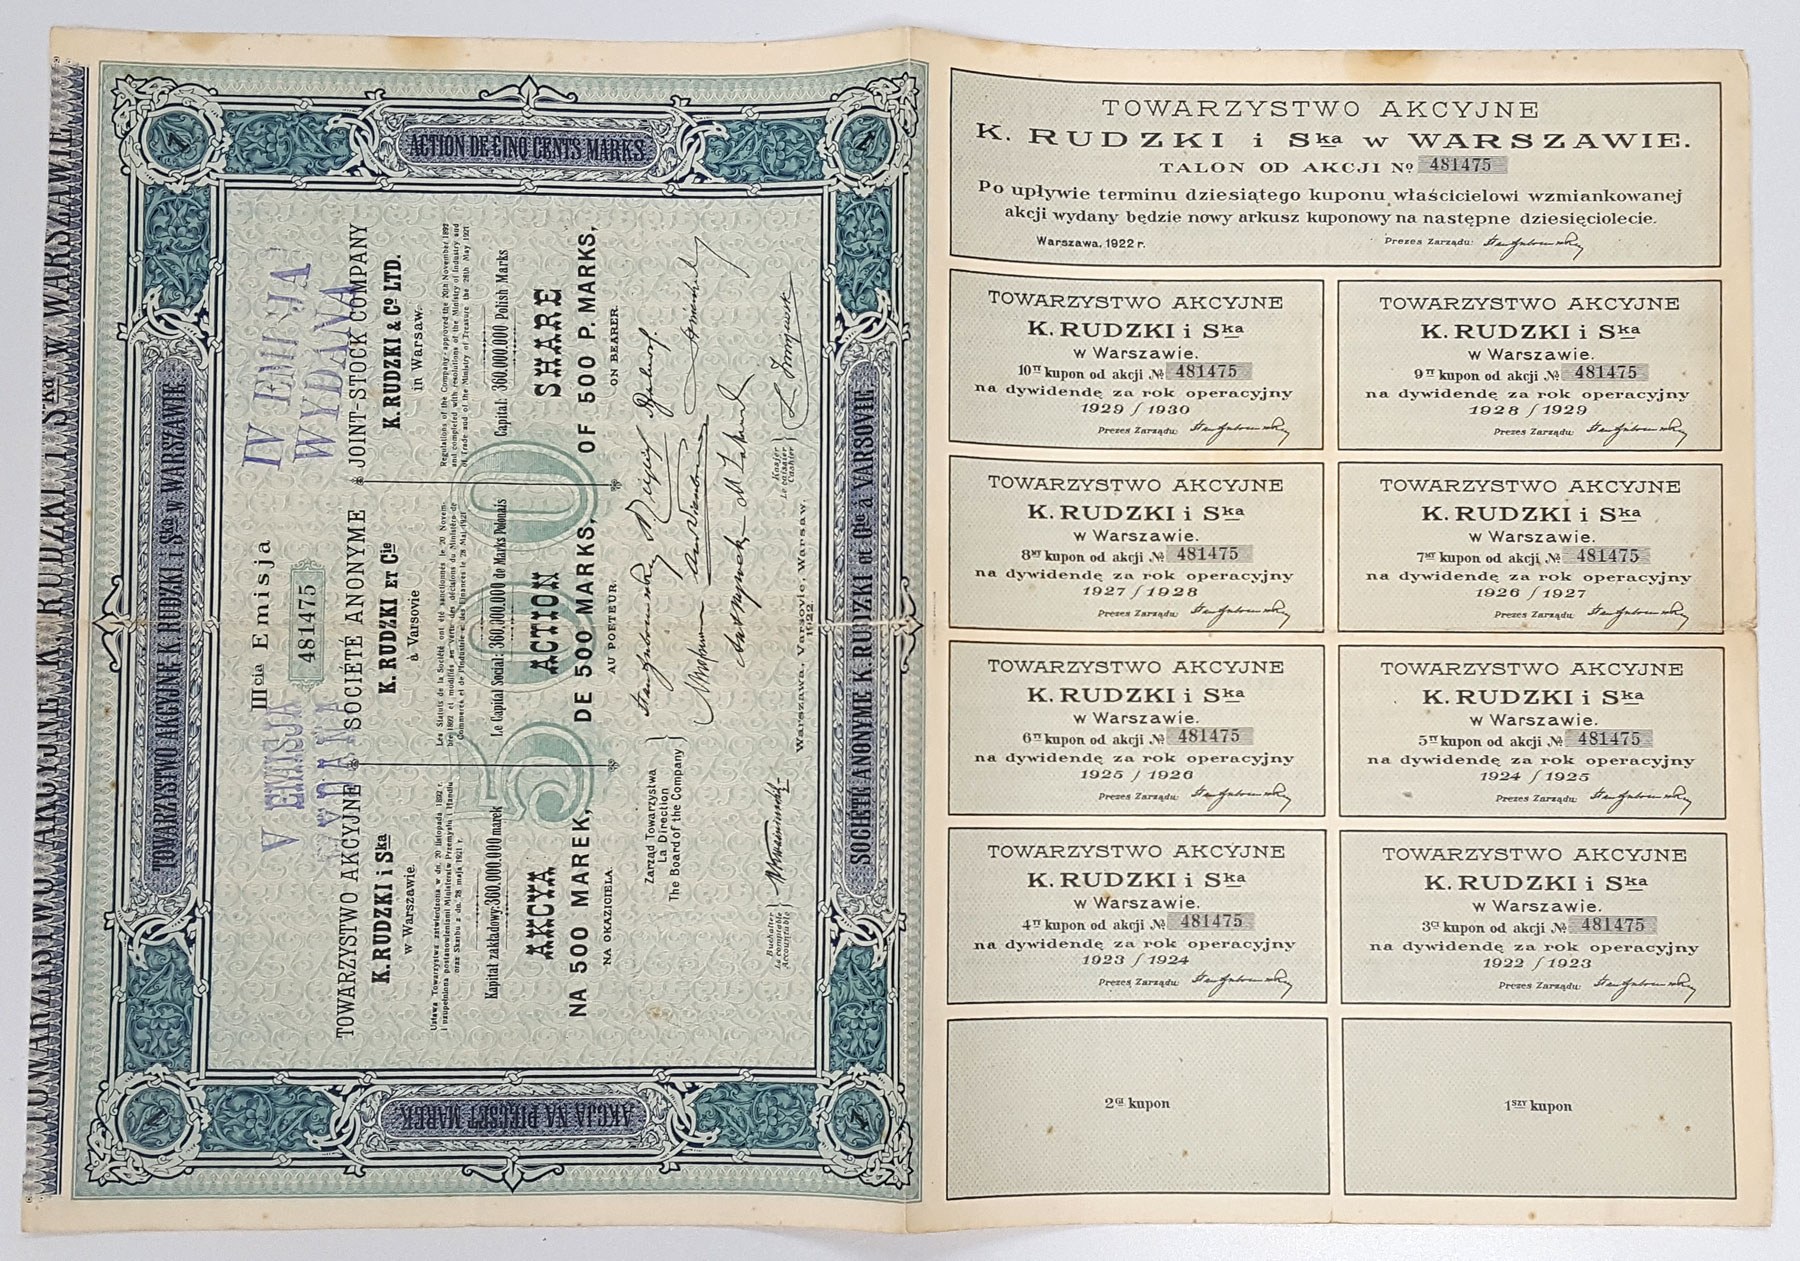 TOWARZYSTWO AKCYJNE K. RUDZKI I Ska W WARSZAWIE
TOWARZYSTWO AKCYJNE K. RUDZKI i Ska w WARSZAWIE.
AKCJA NA PIĘĆSET MAREK
ACTION DE CINQ CENTS MARKS
SOCIÉTÉ ANONYME K. RUDZKI et Cie à VARSOVIE.
1
1
1
1
IIIcia Emisja
481475
V EMISJA
WYDANA
IV EMISJA
WYDANA
500
TOWARZYSTWO AKCYJNE
K. RUDZKI i Ska
w Warszawie.
Ustawa Towarzystwa zatwierdzona w dn. 20 listopada 1892 r.
i uzupełniona postanowieniami Ministerjów Przemysłu i Handlu
oraz Skarbu z dn. 28 maja 1921 r.
Kapitał zakładowy: 360.000.000 marek
AKCYA
NA 500 MAREK,
NA OKAZICIELA.
SOCIÉTÉ ANONYME
K. RUDZKI ET Cie
à Varsovie
Les Statuts de la Société ont été sanctionnés le 20 Novem-
bre 1892 et modifiés en vertu des décisions du Ministère de
Commerce et de l'Industrie et des Finances le 28 Mai 1921
Le Capital Social: 360,000,000 de Marks Polonais
ACTION
DE 500 MARKS,
AU PORTEUR.
JOINT-STOCK COMPANY
K. RUDZKI & Co LTD.
in Warsaw.
Regulations of the Company approved the 20th November 1892
and completed with resolutions of the Ministry of Industry and
of Trade and of the Ministry of Treasure the 28th May 1921
Capital: 360.000.000 Polish Marks
SHARE
OF 500 P. MARKS,
ON BEARER.
Zarząd Towarzystwa
La Direction
The Board of the Company
Buchalter
Le comptable
Accountable
Kasjer
Le caissier
Cashier
Warszawa, Varsovie, Warsaw,
1922.
TOWARZYSTWO AKCYJNE
K. RUDZKI i Ska w WARSZAWIE.
TALON OD AKCJI No 481475
Po upływie terminu dziesiątego kuponu właścicielowi wzmiankowanej
akcji wydany będzie nowy arkusz kuponowy na następne dziesięciolecie.
Warszawa, 1922 r.
Prezes Zarządu:
TOWARZYSTWO AKCYJNE
K. RUDZKI i Ska
w Warszawie.
10ty kupon od akcji № 481475
na dywidendę za rok operacyjny
1929 / 1930
Prezes Zarządu:
TOWARZYSTWO AKCYJNE
K. RUDZKI i Ska
w Warszawie.
9ty kupon od akcji № 481475
na dywidendę za rok operacyjny
1928 / 1929
Prezes Zarządu:
TOWARZYSTWO AKCYJNE
K. RUDZKI i Ska
w Warszawie.
8my kupon od akcji № 481475
na dywidendę za rok operacyjny
1927 / 1928
Prezes Zarządu:
TOWARZYSTWO AKCYJNE
K. RUDZKI i Ska
w Warszawie.
7my kupon od akcji № 481475
na dywidendę za rok operacyjny
1926 / 1927
Prezes Zarządu:
TOWARZYSTWO AKCYJNE
K. RUDZKI i Ska
w Warszawie.
6ty kupon od akcji № 481475
na dywidendę za rok operacyjny
1925 / 1926
Prezes Zarządu:
TOWARZYSTWO AKCYJNE
K. RUDZKI i Ska
w Warszawie.
5ty kupon od akcji № 481475
na dywidendę za rok operacyjny
1924 / 1925
Prezes Zarządu:
TOWARZYSTWO AKCYJNE
K. RUDZKI i Ska
w Warszawie.
4ty kupon od akcji № 481475
na dywidendę za rok operacyjny
1923 / 1924
Prezes Zarządu:
TOWARZYSTWO AKCYJNE
K. RUDZKI i Ska
w Warszawie.
3ci kupon od akcji № 481475
na dywidendę za rok operacyjny
1922 / 1923
Prezes Zarządu:
2gi kupon
1szy kupon